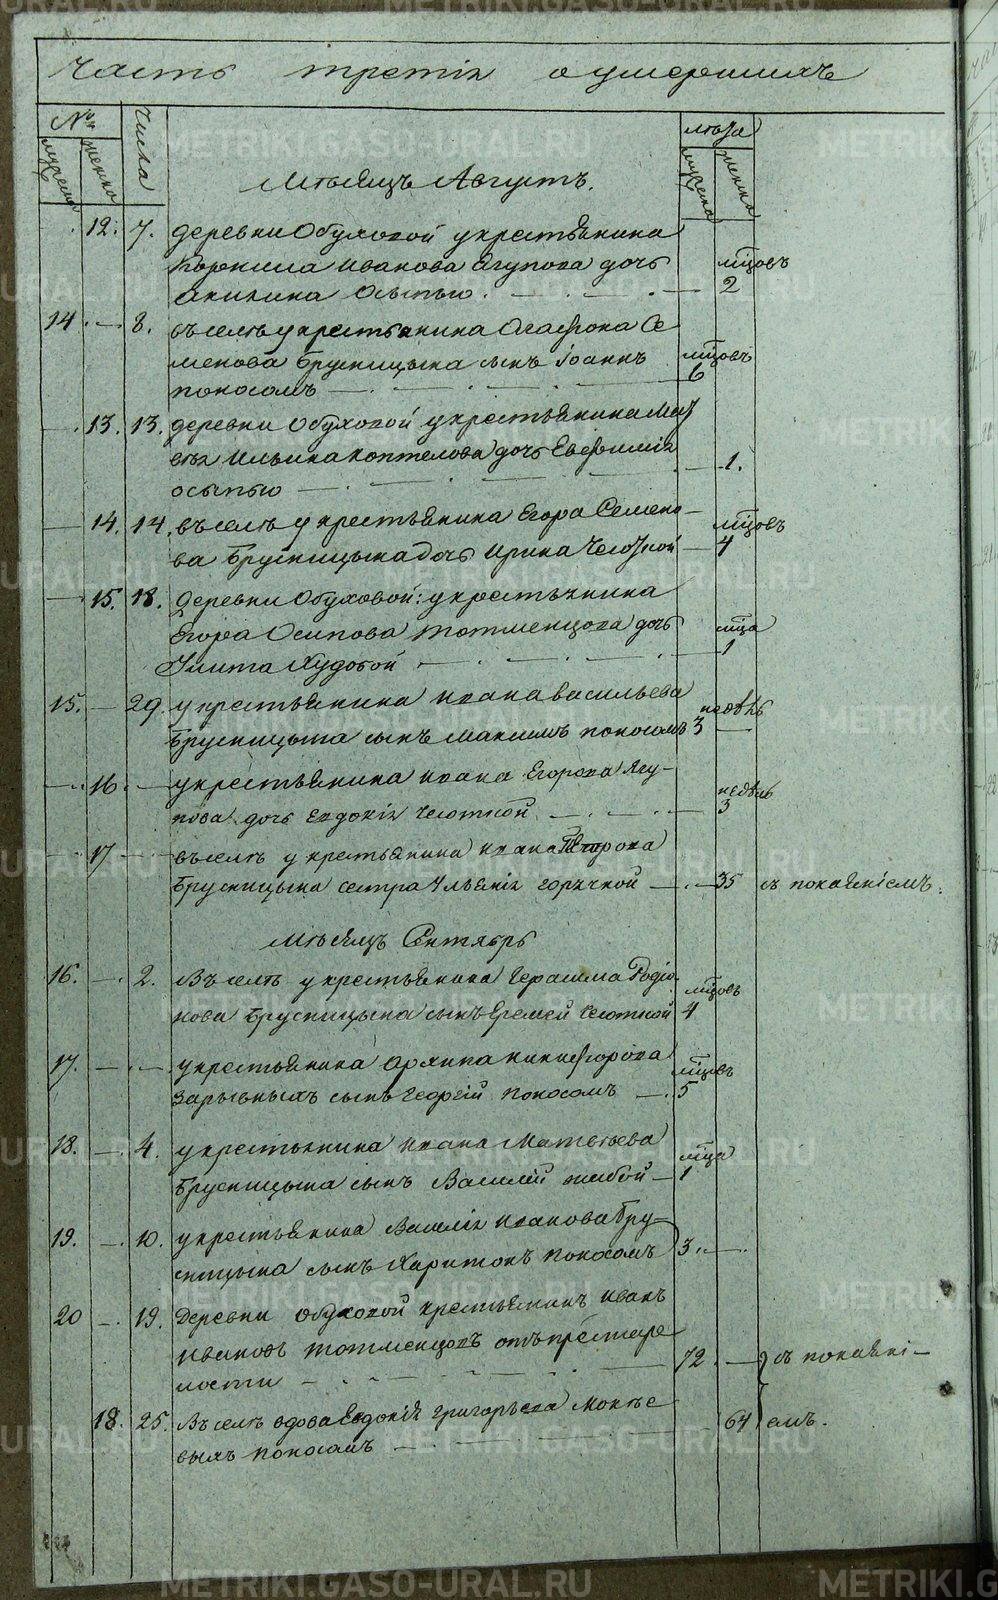 Часть третія о умершихъ
№
Числа
лѣта
мужеска
женска
мужеска
женска
Мѣсяцъ Августъ.
12. 7. деревни Обуховой у крестьянина
Корнила Иванова Ягупова дочь м͠цовъ
Акилина осыпью. 2
14. — 8. въ селѣ у крестьянина Агафона Се
менова Брусницына сынъ Іоаннъ м͠цовъ
поносомъ — 6
— 13. 13. деревни Обуховой у крестьянина Мат
вѣя Ильина Коптелова дочь Евфимія 1.
осыпью —
— 14. 14. въ селѣ у крестьянина Егора Семено- м͠цовъ
ва Брусницына дочь Ирина чесоткой — 4
— 15. 18. Деревни Обуховой: у крестьянина
Егора Осипова Тотменцова дочь м͠ца
Улита худобой — 1
15. — 29. у крестьянина Ивана Васильева недѣль
Брусницына сынъ Максимъ поносомъ 3 —
— 16. — у крестьянина Ивана Егорова Ягу- недѣль
пова дочь Евдокія чесоткой — 3
— 17 — въ селѣ у крестьянина Ивана Петрова
Брусницына сестра Ульянія горячкой — 35 съ покаяніемъ.
Мѣсяцъ Сентябрь
16. — 2. Въ селѣ у крестьянина Герасима Родіо- м͠цовъ
нова Брусницына сынъ Еремей чесоткой 4
17. — у крестьянина Архипа Никифорова м͠цовъ
Зарывныхъ сынъ Георгій поносомъ — 5
18. — 4. у крестьянина Ивана Матвѣева м͠ца
Брусницына сынъ Василій жабой — 1
19. — 10. у крестьянина Василія Иванова Бру-
сницына сынъ Харитонъ поносомъ 3. —
20 — 19. Деревни Обуховой крестьянинъ Иванъ
Ивановъ Тотменцовъ отъ престаре
лости — 72. — съ покаяні-
18. 25. Въ селѣ вдова Евдокія Григорьева Мокѣе 64 емъ.
выхъ поносомъ —
METRIKI.GASO-URAL.RU